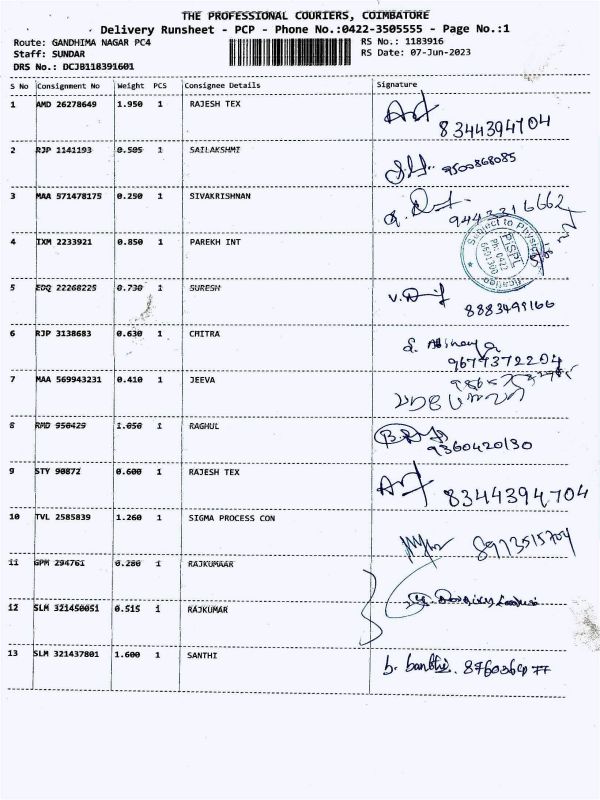 THE PROFESSIONAL COURIERS, COIMBATORE
Delivery Runsheet - PCP - Phone No.:0422-3505555 - Page No.:1
Route: GANDHIMA NAGAR PC4 RS No.: 1183916
Staff: SUNDAR RS Date: 07-Jun-2023
DRS No.: DCJB118391601
S No Consignment No Weight PCS Consignee Details Signature
1 AMD 26278649 1.950 1 RAJESH TEX
8344394704
2 RJP 1141193 0.505 1 SAILAKSHMI
9500868085
3 MAA 571478175 0.250 1 SIVAKRISHNAN
4 IXM 2233921 0.850 1 PAREKH INT
Subject to Physical
PISPL
Ph: 0422
5 EDQ 22268225 0.730 1 SURESH
8883499166
6 RJP 3138683 0.630 1 CHITRA
9679372204
7 MAA 569943231 0.410 1 JEEVA
8 RMD 950429 1.050 1 RAGHUL
9360420130
9 STY 90872 0.600 1 RAJESH TEX
8344394704
10 TVL 2585839 1.260 1 SIGMA PROCESS CON
8973515704
11 GPM 294761 0.280 1 RAJKUMAAR
12 SLM 321450051 0.515 1 RAJKUMAR
13 SLM 321437801 1.600 1 SANTHI